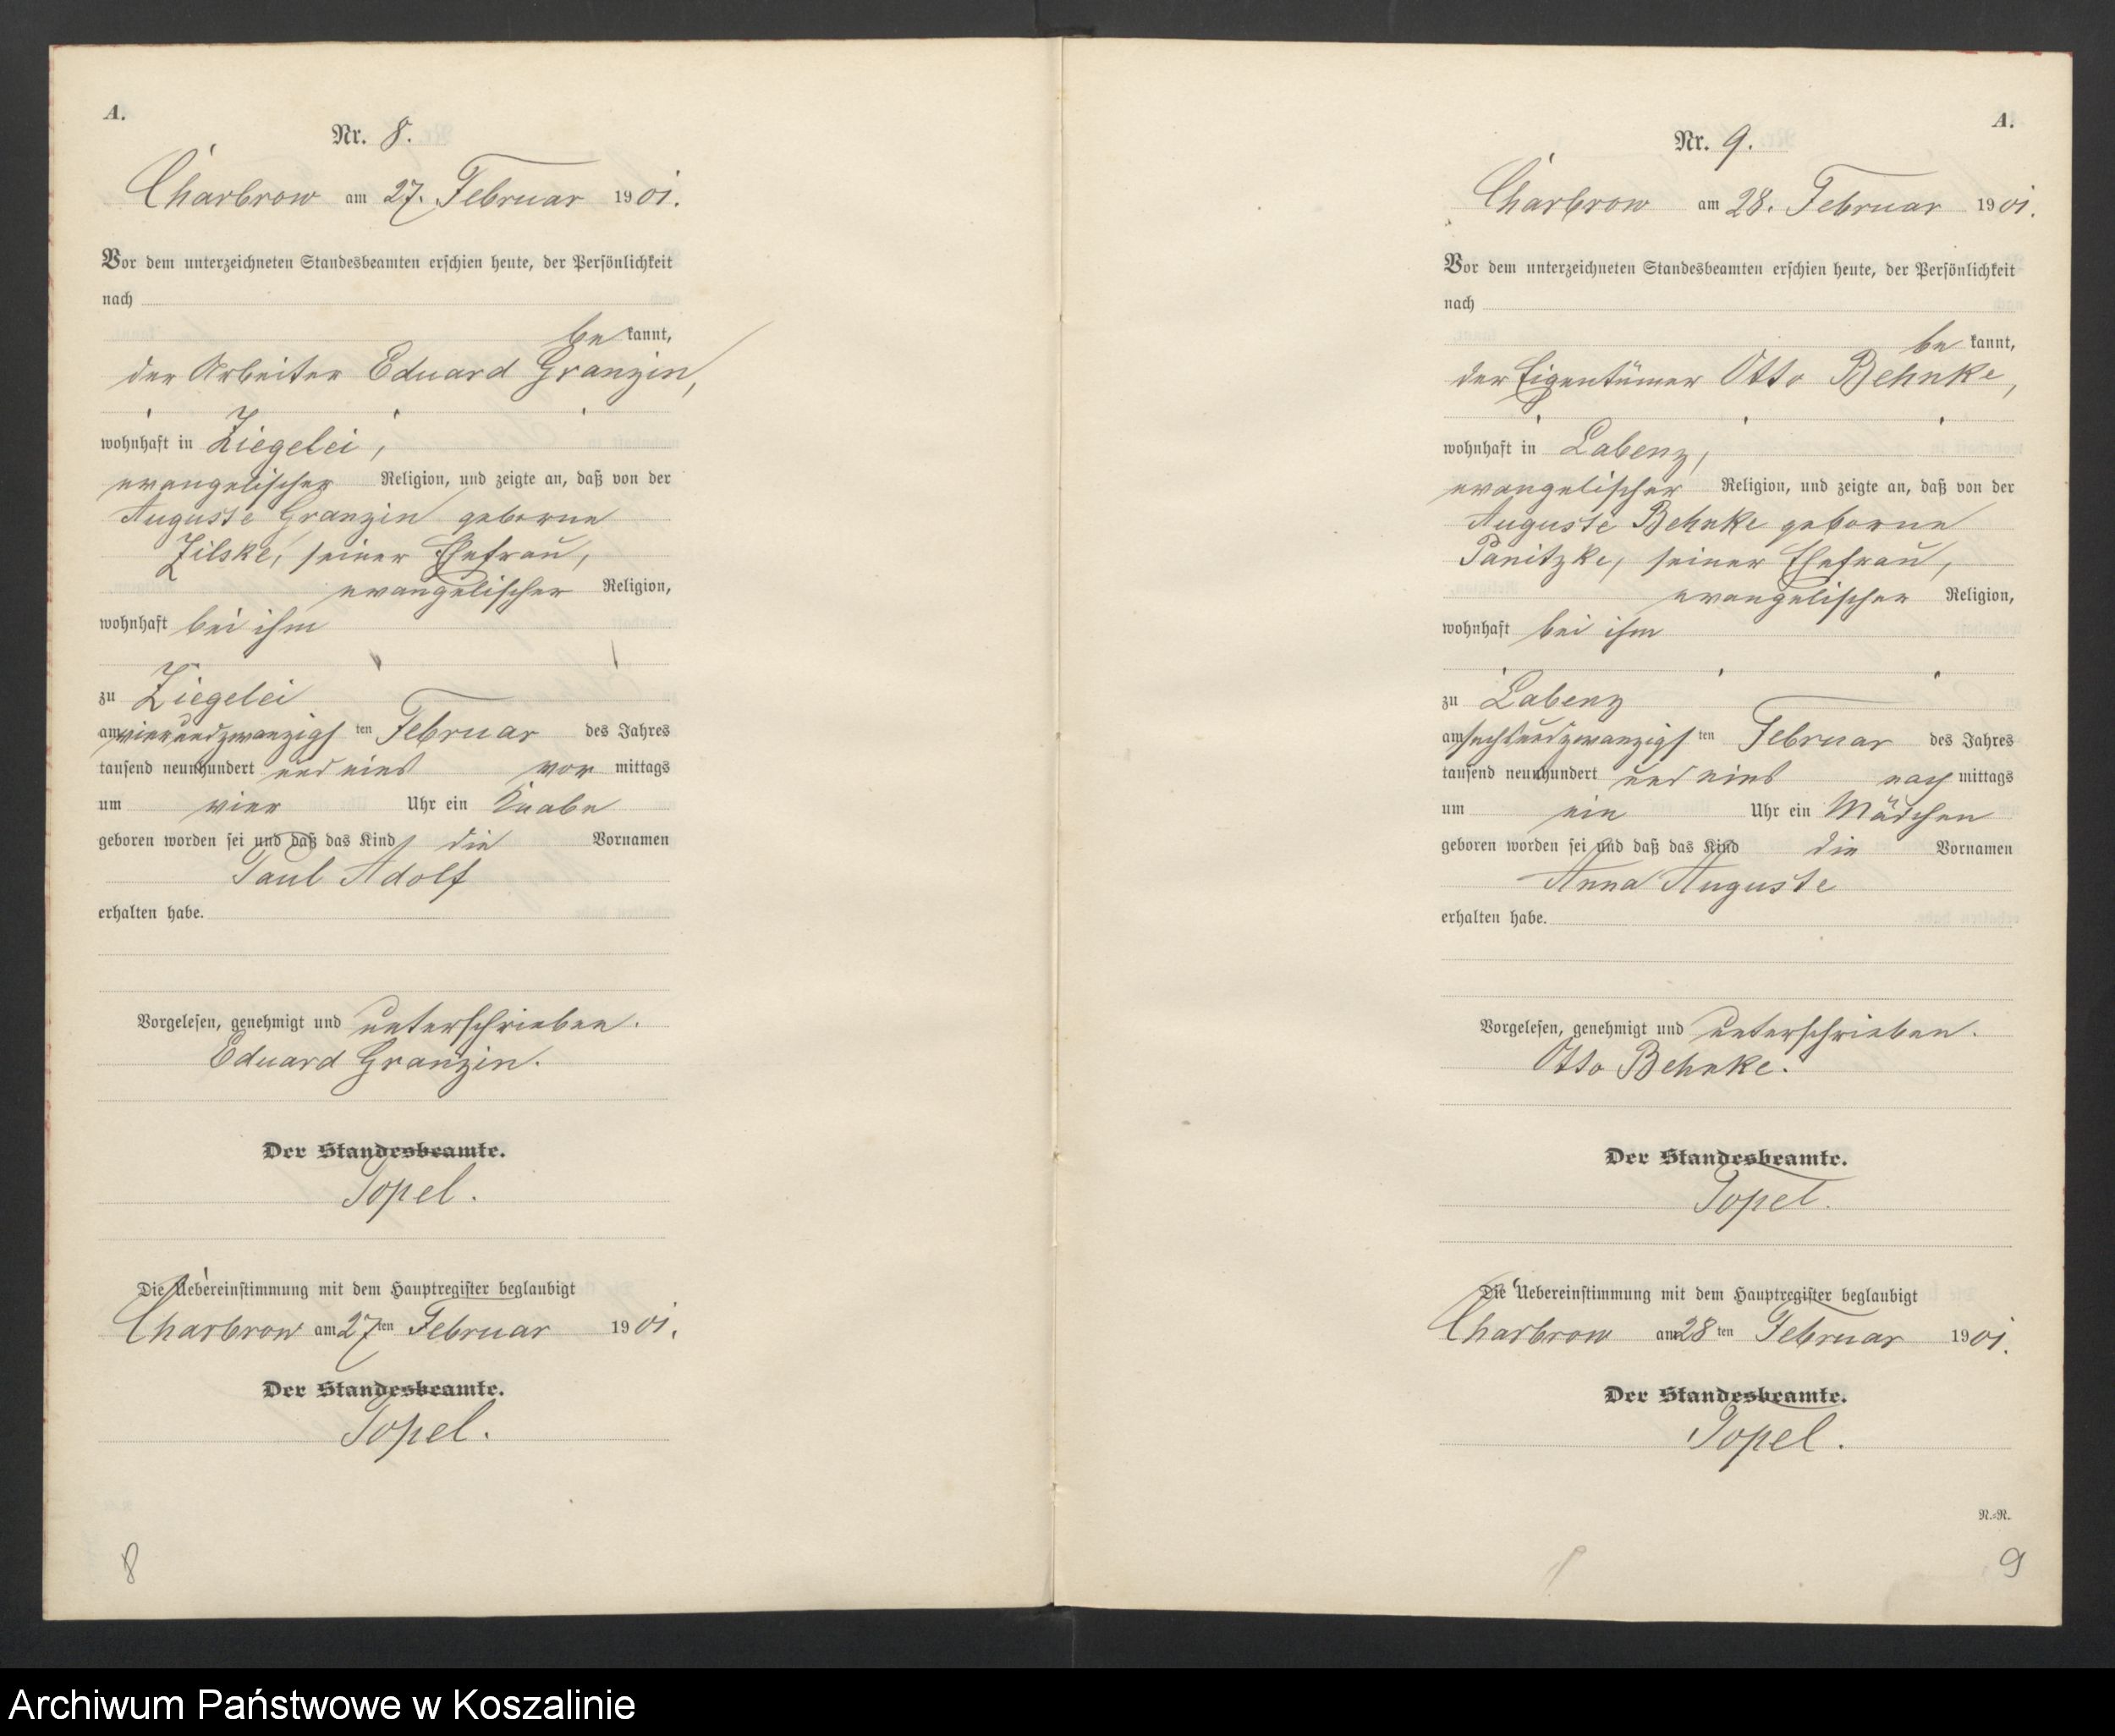 A.
Nr. 8.
Charbrow am 27. Februar 1901.
Vor dem unterzeichneten Standesbeamten erschien heute, der Persönlichkeit
nach
be kannt,
der Arbeiter Eduard Granzin,
wohnhaft in Ziegelei,
evangelischer Religion, und zeigte an, daß von der
Auguste Granzin geborne
Zilske, seiner Ehefrau,
evangelischer Religion,
wohnhaft bei ihm
zu Ziegelei
am vierundzwanzigsten Februar des Jahres
tausend neunhundert und eins vor mittags
um vier Uhr ein Knabe
geboren worden sei und daß das Kind die Vornamen
Paul Adolf
erhalten habe.
Vorgelesen, genehmigt und unterschrieben.
Eduard Granzin.
Der Standesbeamte.
Topel.
Die Uebereinstimmung mit dem Hauptregister beglaubigt
Charbrow am 27ten Februar 1901.
Der Standesbeamte.
Topel.
8
A.
Nr. 9.
Charbrow am 28. Februar 1901.
Vor dem unterzeichneten Standesbeamten erschien heute, der Persönlichkeit
nach
be kannt,
der Eigentümer Otto Behnke,
wohnhaft in Labenz,
evangelischer Religion, und zeigte an, daß von der
Auguste Behnke geborne
Panitzke, seiner Ehefrau,
evangelischer Religion,
wohnhaft bei ihm
zu Labenz
am sechsundzwanzigsten Februar des Jahres
tausend neunhundert und eins nach mittags
um ein Uhr ein Mädchen
geboren worden sei und daß das Kind die Vornamen
Anna Auguste
erhalten habe.
Vorgelesen, genehmigt und unterschrieben.
Otto Behnke.
Der Standesbeamte.
Topel.
Die Uebereinstimmung mit dem Hauptregister beglaubigt
Charbrow am 28ten Februar 1901.
Der Standesbeamte.
Topel.
N.-R.
9
Archiwum Państwowe w Koszalinie